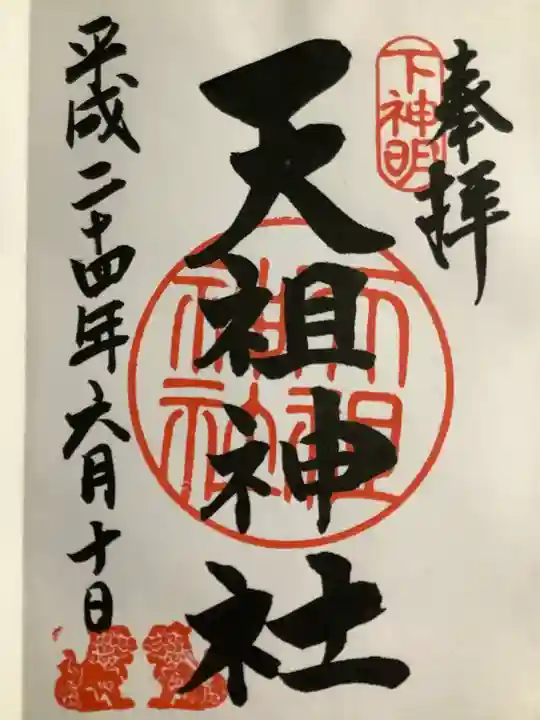 奉拝
下神明
天祖神社
天祖神社
平成二十四年六月十日